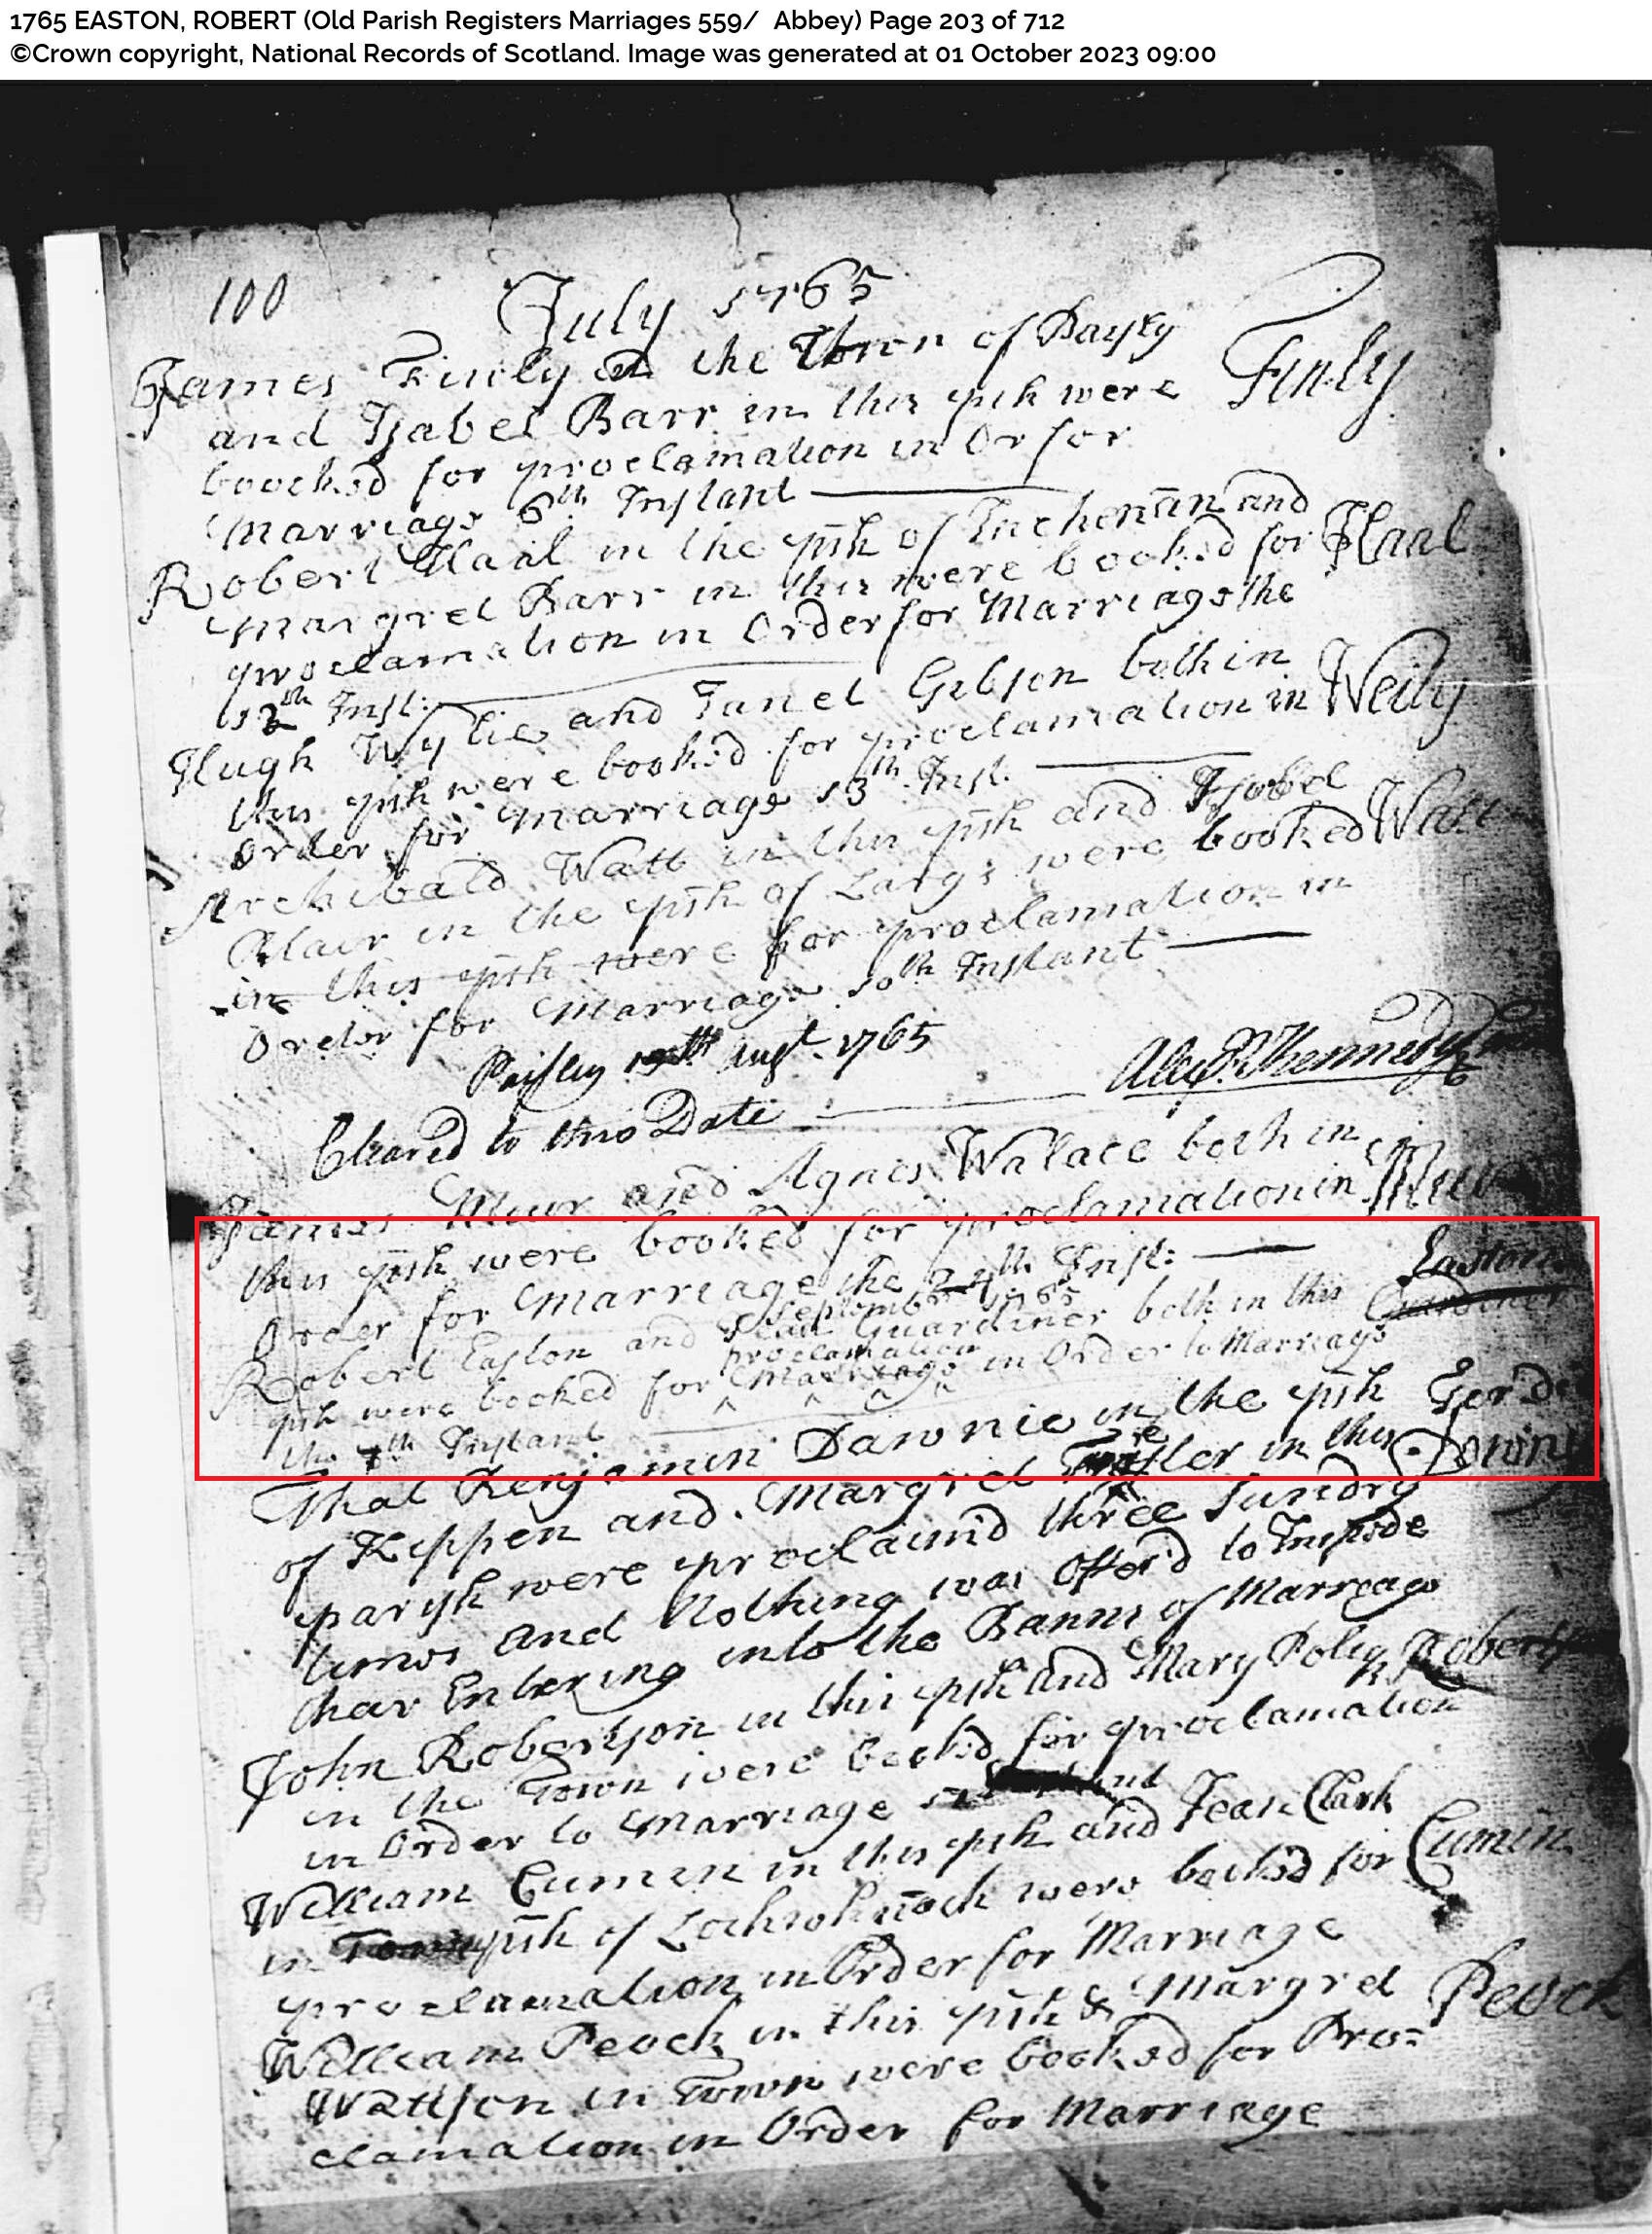 1765 EASTON, ROBERT (Old Parish Registers Marriages 559/ Abbey) Page 203 of 712
©Crown copyright, National Records of Scotland. Image was generated at 01 October 2023 09:00
100
July 1765
James Finly in the Town of Paysly
Finly
and Isabel Barr in this psh were
boocked for proclamation in Or for
Marriage 6th Instant
Robert Haal in the psh of Inchenan and
Haal
Margret Barr in this were booked for
proclamation in Order for Marriage the
12th Inst:
Hugh Wylie and Janet Gibson both in
Weily
this psh were booked for proclamation in
Order for Marriage 13th Inst.
Archibald Watt in this psh and Isobel
Watt
Blair in the psh of Largs were booked
in this psh were for proclamation in
Order for Marriage 10th Instant
Paisley Augt. 1765
Cleared to this Date
James Muir and Agnes Walace both in
Muir
this psh were booked for proclamation in
Order for Marriage the 24th Inst:
September 1765
Easton
Robert Easton and Jean Guardiner both in this
Guardiner
proclamation
psh were booked for Marriage in Order to Marriage
the 7th Instant
That Benjamin Dawnie in the psh
Downi
of Kippen and Margret in this
parish were proclaimd three sundry
times and Nothing was Offer'd to Impode
thear Entering into the Banns of Marreage
John Robertson in this psh and Mary
in the Town were booked for proclamation
in Order to Marriage
William Cumin in this psh and Jean Clark
Cumin
in psh of were booked for
proclamation in Order for Marriage
William Peock in this psh & Margret
Peock
Wattson in Town were booked for Pro=
clamation in Order for Marriage